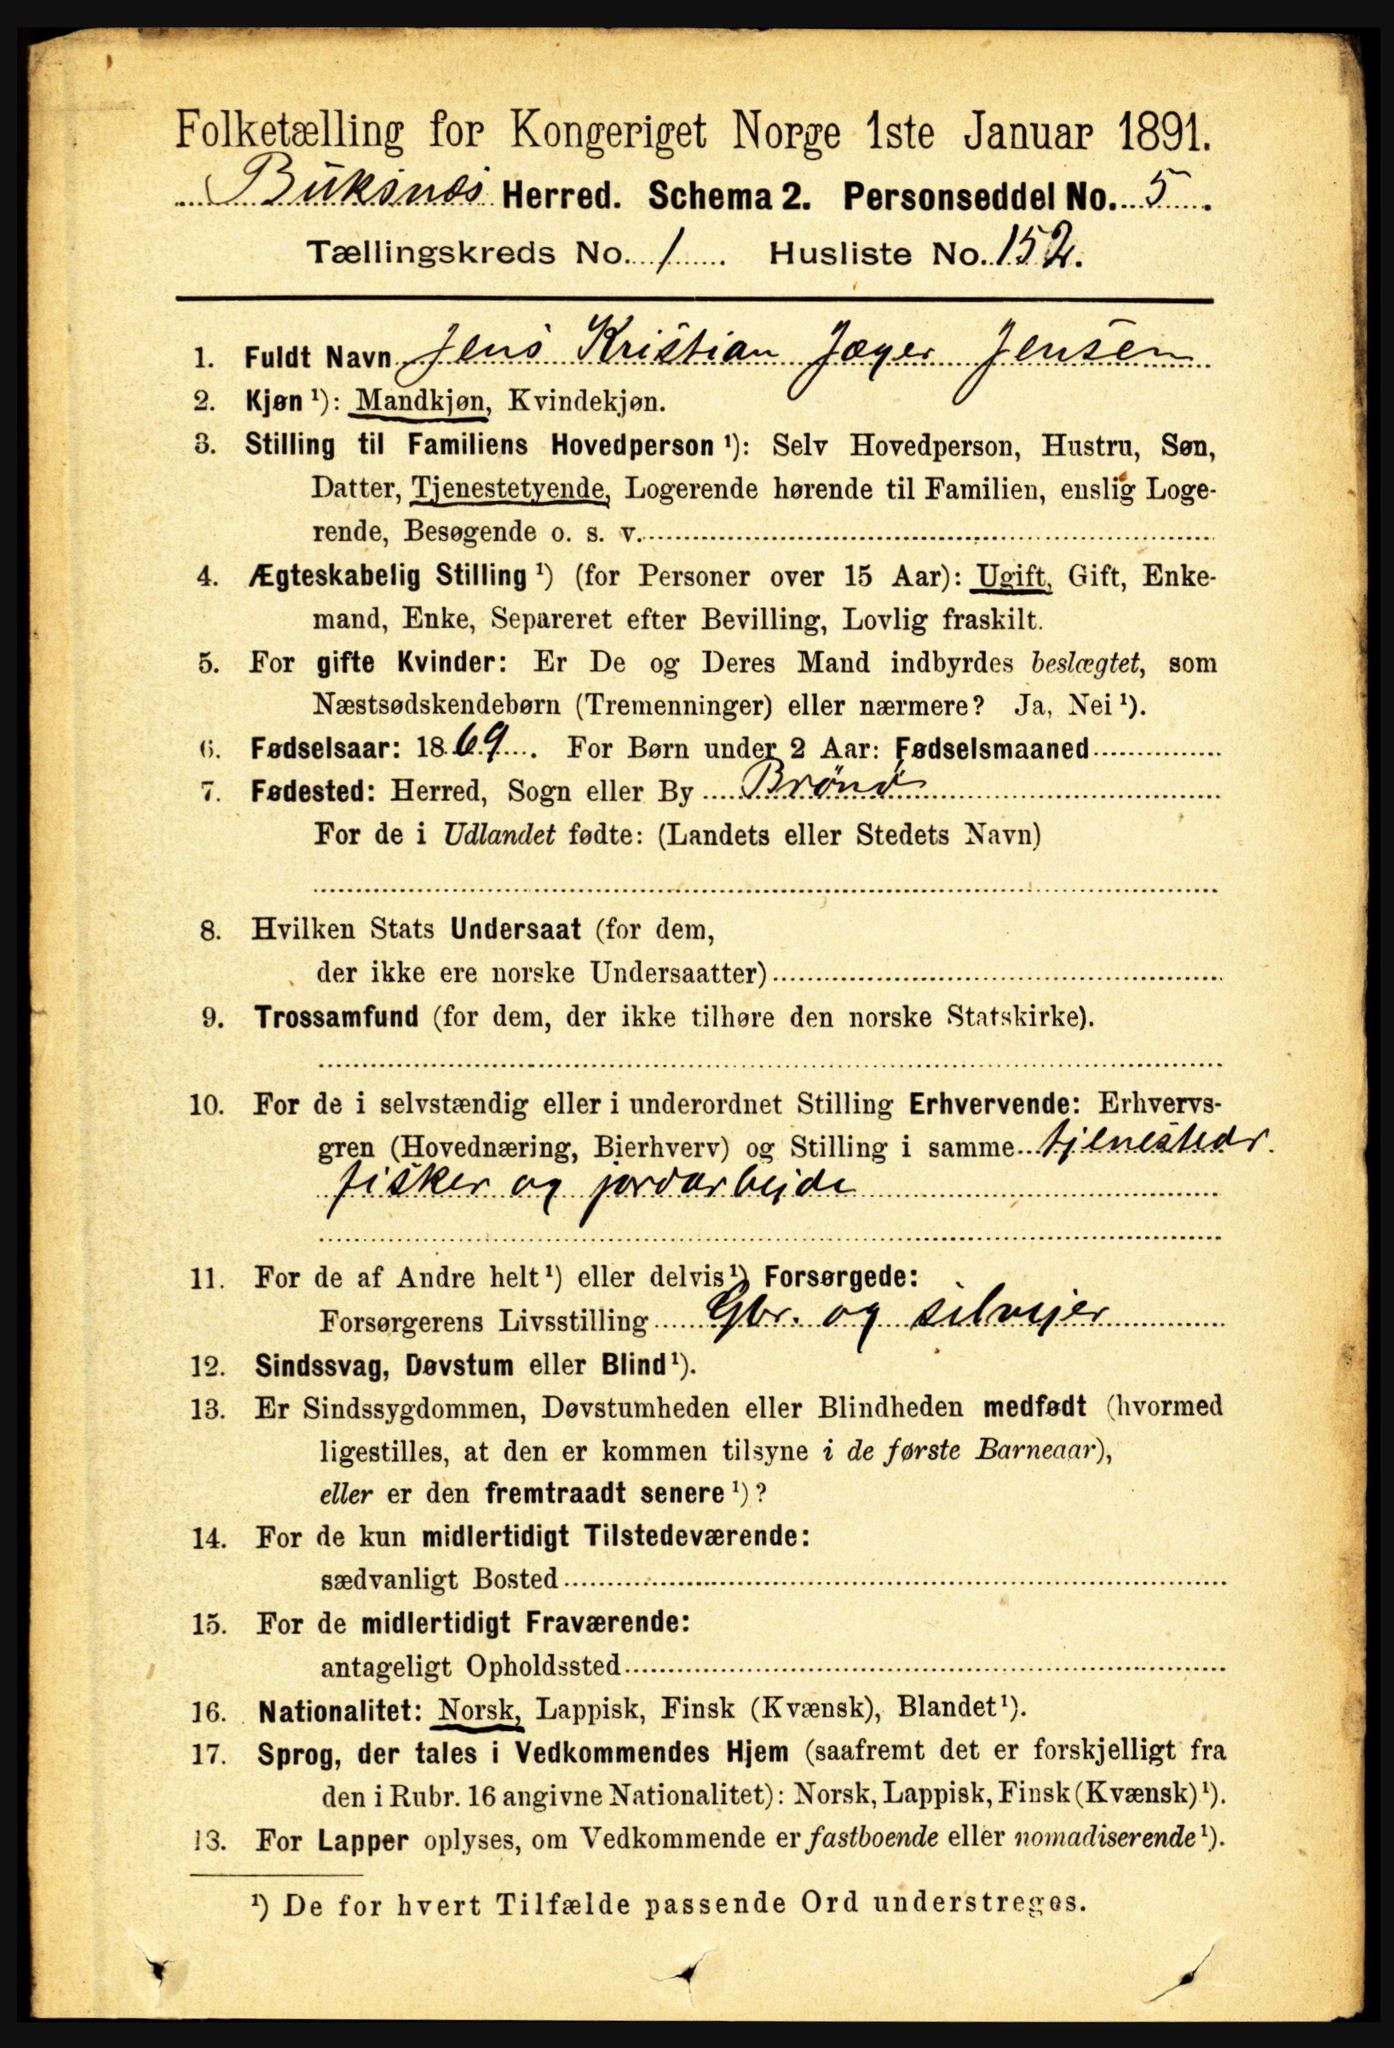 Folketælling for Kongeriget Norge 1ste Januar 1891.
Buksnæs Herred. Schema 2. Personseddel No. 5.
Tællingskreds No. 1. Husliste No. 152.
1. Fuldt Navn Jens Kristian Jæger Jensen
2. Kjøn ¹): Mandkjøn, Kvindekjøn.
3. Stilling til Familiens Hovedperson ¹): Selv Hovedperson, Hustru, Søn,
Datter, Tjenestetyende, Logerende hørende til Familien, enslig Loge-
rende, Besøgende o. s. v.
4. Ægteskabelig Stilling ¹) (for Personer over 15 Aar): Ugift, Gift, Enke-
mand, Enke, Separeret efter Bevilling, Lovlig fraskilt.
5. For gifte Kvinder: Er De og Deres Mand indbyrdes beslægtet, som
Næstsødskendebørn (Tremenninger) eller nærmere? Ja, Nei ¹).
6. Fødselsaar: 1869. For Børn under 2 Aar: Fødselsmaaned
7. Fødested: Herred, Sogn eller By Brönö
For de i Udlandet fødte: (Landets eller Stedets Navn)
8. Hvilken Stats Undersaat (for dem,
der ikke ere norske Undersaatter)
9. Trossamfund (for dem, der ikke tilhøre den norske Statskirke).
10. For de i selvstændig eller i underordnet Stilling Erhvervende: Erhvervs-
gren (Hovednæring, Bierhverv) og Stilling i samme tjenestedr.
fisker og jordarbejde
11. For de af Andre helt ¹) eller delvis ¹) Forsørgede:
Forsørgerens Livsstilling Gbr. og selvejer
12. Sindssvag, Døvstum eller Blind ¹).
13. Er Sindssygdommen, Døvstumheden eller Blindheden medfødt (hvormed
ligestilles, at den er kommen tilsyne i de første Barneaar),
eller er den fremtraadt senere ¹)?
14. For de kun midlertidigt Tilstedeværende:
sædvanligt Bosted
15. For de midlertidigt Fraværende:
antageligt Opholdssted
16. Nationalitet: Norsk, Lappisk, Finsk (Kvænsk), Blandet ¹).
17. Sprog, der tales i Vedkommendes Hjem (saafremt det er forskjelligt fra
den i Rubr. 16 angivne Nationalitet): Norsk, Lappisk, Finsk (Kvænsk) ¹).
13. For Lapper oplyses, om Vedkommende er fastboende eller nomadiserende ¹).
¹) De for hvert Tilfælde passende Ord understreges.